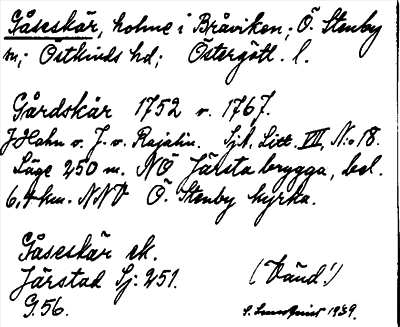 Gåseskär, holme i Bråviken; Ö. Stenby
sn; Östkinds hd; Östergötl. l.
Gårdskär 1752 o. 1767.
J. Hahn o. J. v. Rajalin. Sj.A. Litt. VII, No 18.
Läge 250 m. NÖ Järsta brygga, bel.
6,4 km. NNV Ö. Stenby kyrka.
Gåseskär ek.
Järstad Sj: 251.
G. 56.
1939.